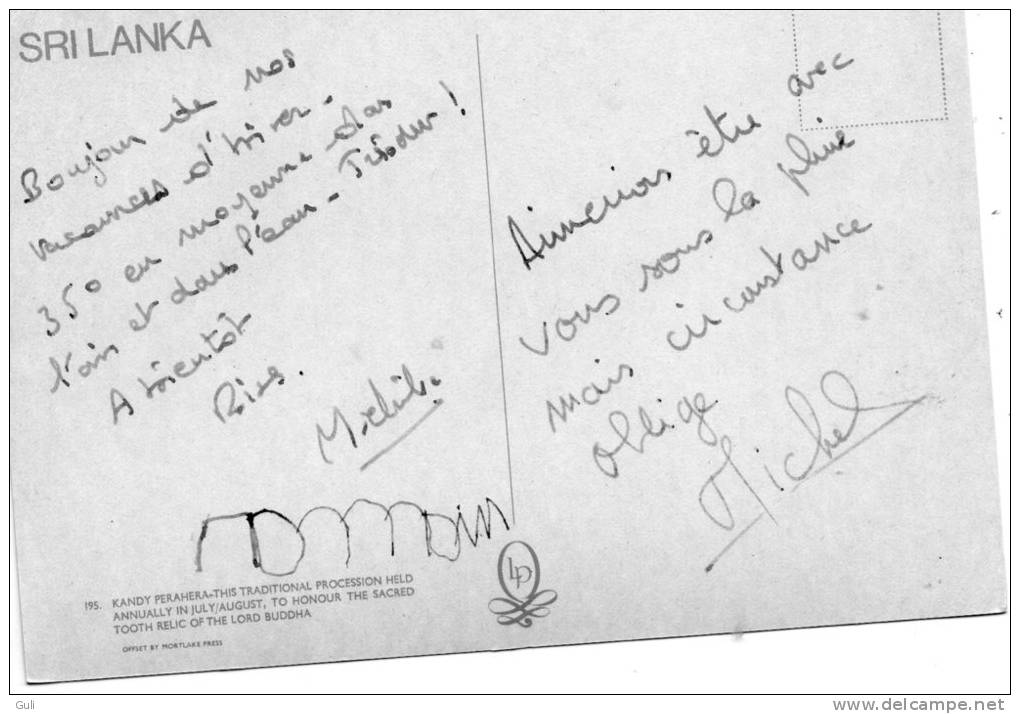 SRI LANKA
Bonjour de nos
vacances d'hiver -
35° en moyenne dans
l'air et dans l'eau -
A bientôt
Bises.
romain
Aimerions être avec
vous sous la pluie
mais circonstance
oblige
Michel
LP
195. KANDY PERAHERA-THIS TRADITIONAL PROCESSION HELD
ANNUALLY IN JULY/AUGUST, TO HONOUR THE SACRED
TOOTH RELIC OF THE LORD BUDDHA
OFFSET BY MORTLAKE PRESS
Guli
delcampe.net